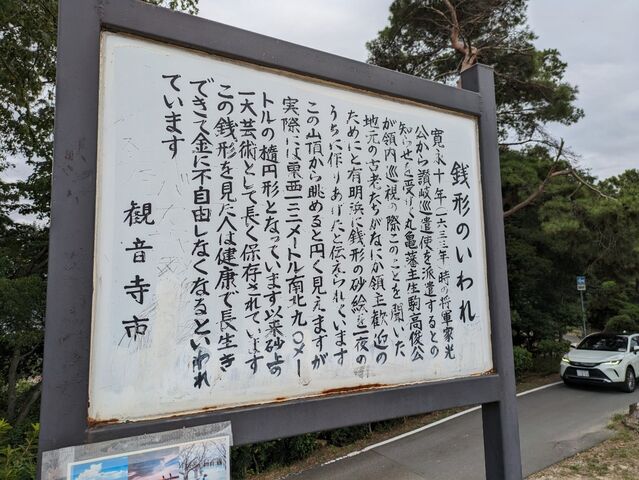 銭形のいわれ
寛永十年一六三三年 時の将軍家光
公から讃岐巡遣使を派遣するとの
知らせを受けた丸亀藩主生駒高俊公
が領内巡視の際このことを聞いた
地元の古老たちがなにか領主歓迎の
ためにと有明浜に銭形の砂絵を一夜の
うちに作りあげたと伝えられています
この山頂から眺めると円く見えますが
実際には東西一二二メートル南北九〇メー
トルの楕円形となっています以来砂上の
一大芸術として長く保存されています
この銭形を見た人は健康で長生き
できて金に不自由しなくなるといわれ
ています
観音寺市